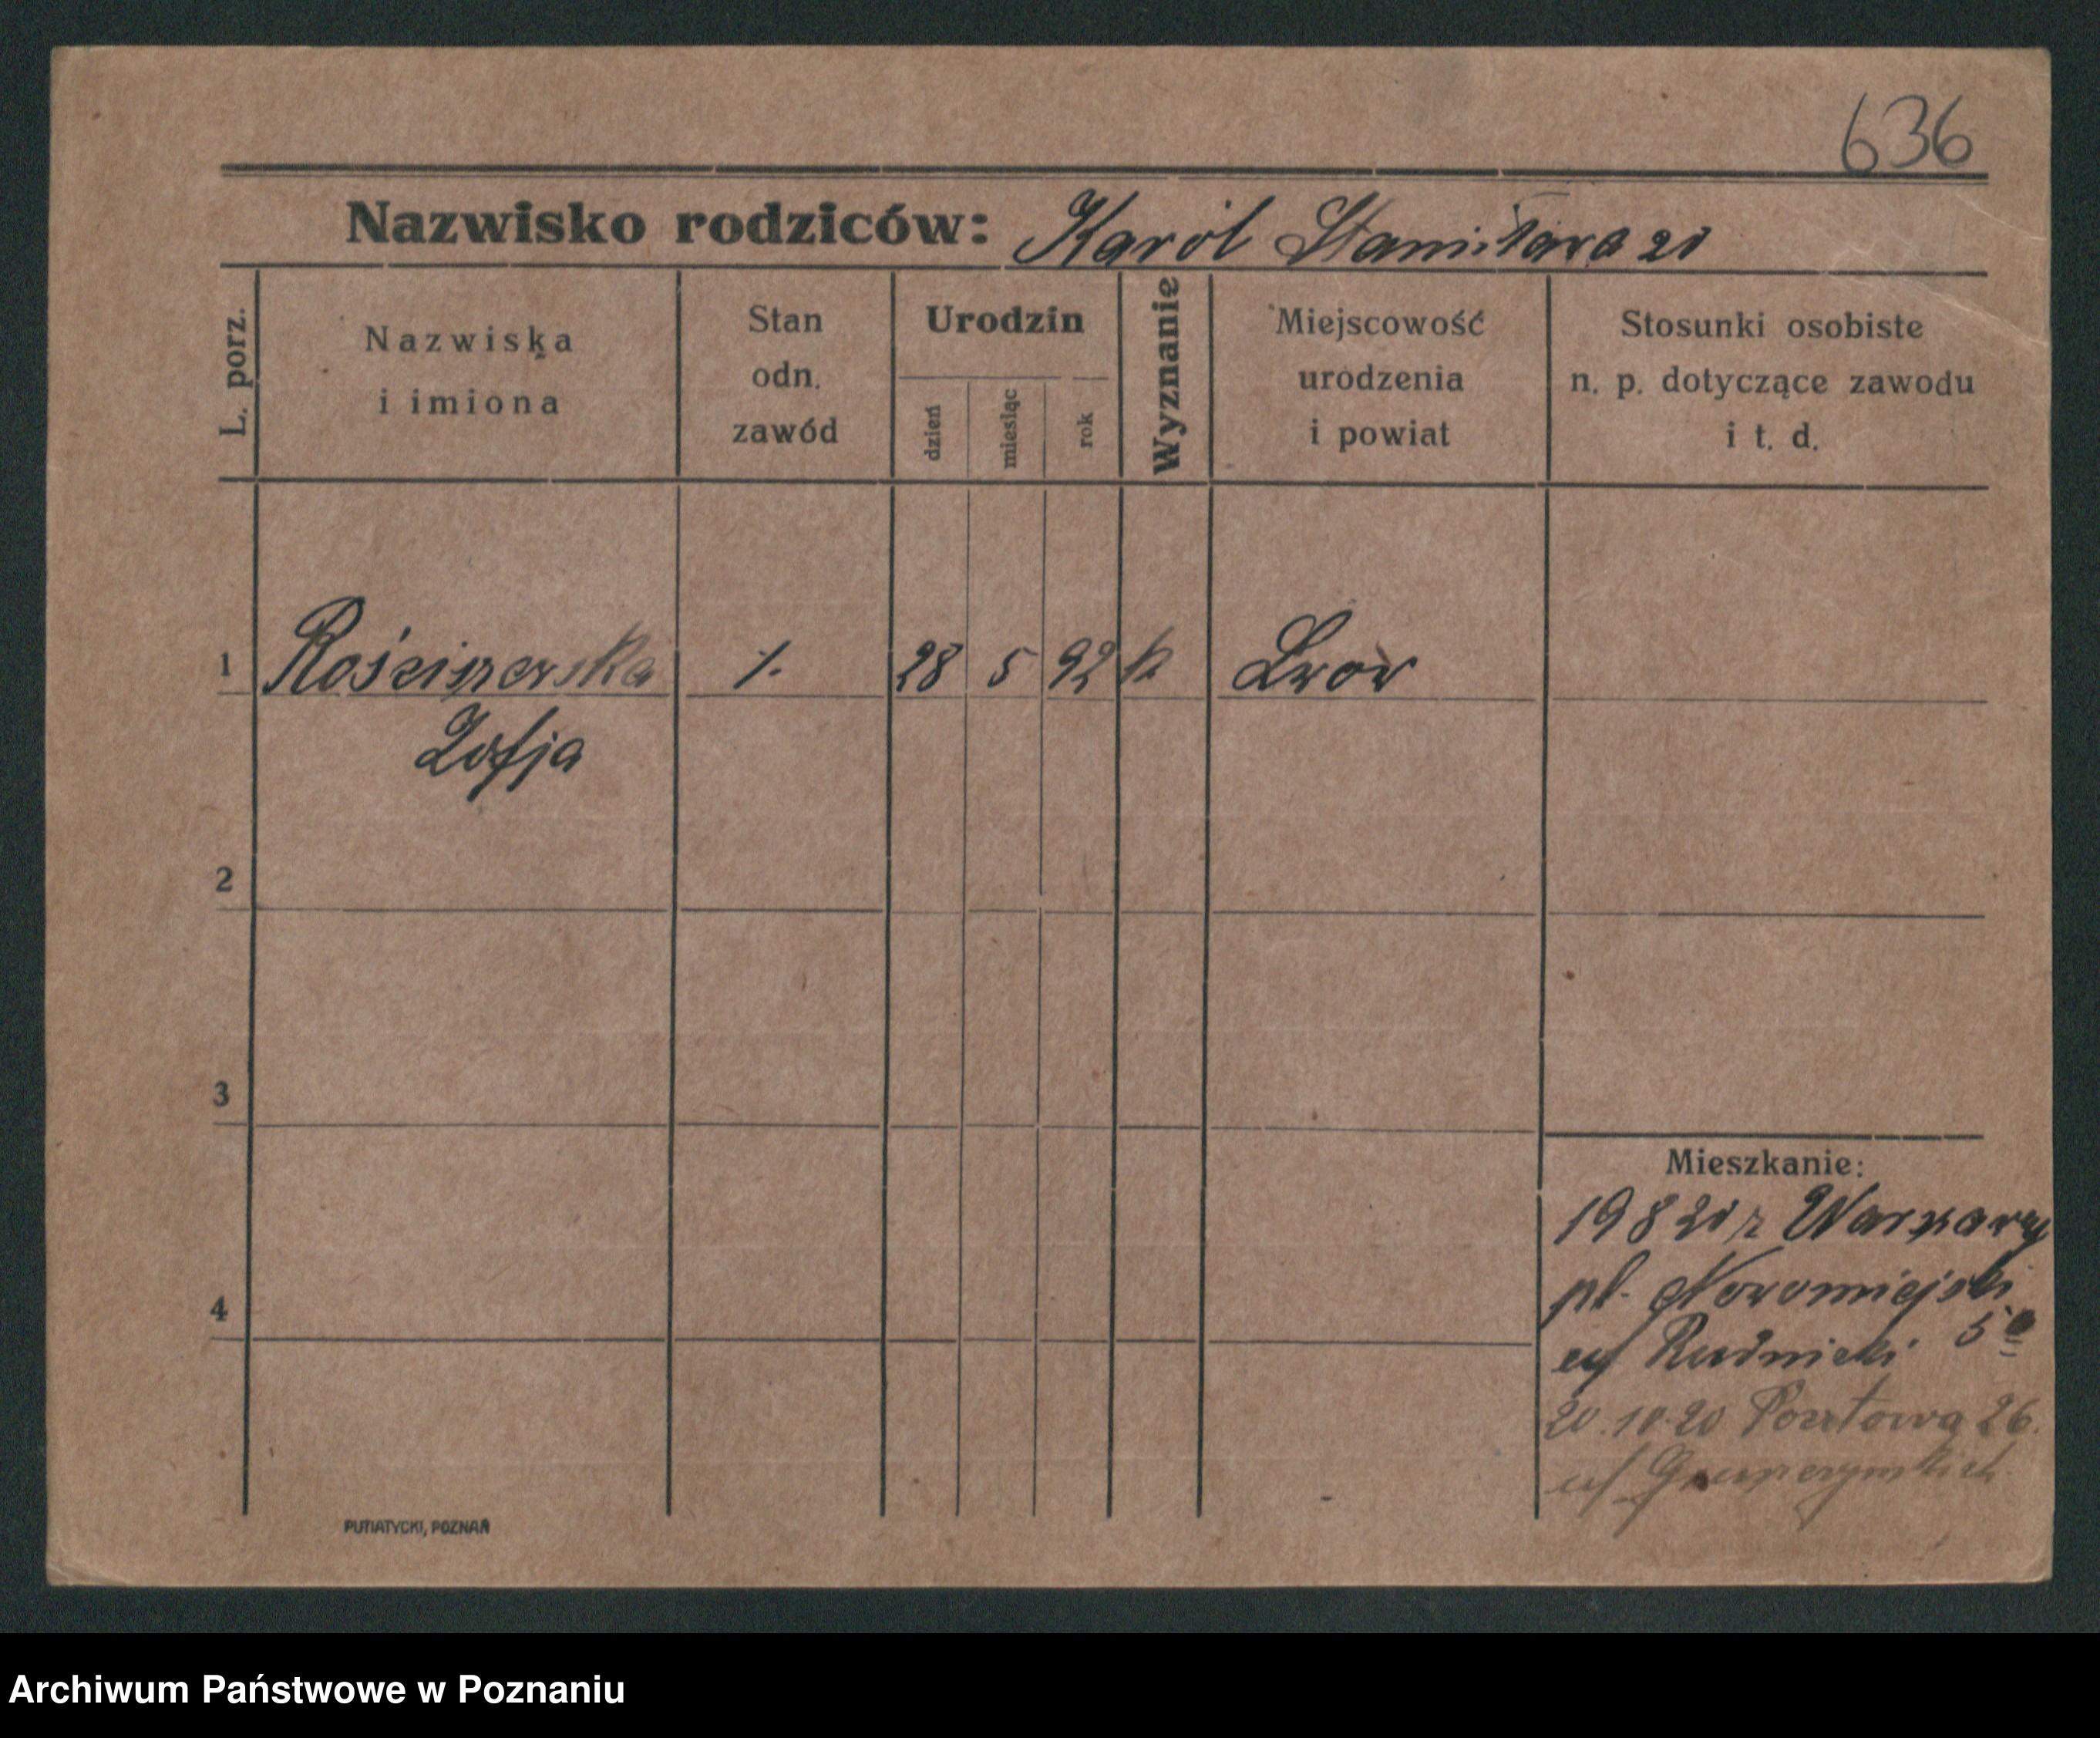 636
Nazwisko rodziców: Karol
L. porz.
Nazwiska
i imiona
Stan
odn.
zawód
Urodzin
dzień
miesiąc
rok
Wyznanie
Miejscowość
urodzenia
i powiat
Stosunki osobiste
n. p. dotyczące zawodu
i t. d.
1 Rościszewska 28 5 92 k Lwów
Zofja
2
3
4
Mieszkanie:
19 8 20 z Warszawy
pl. Nowomiejski
u/ Rudnicki 5a
20.10.20 Pocztowa 26.
PUTIATYCKI, POZNAŃ
Archiwum Państwowe w Poznaniu